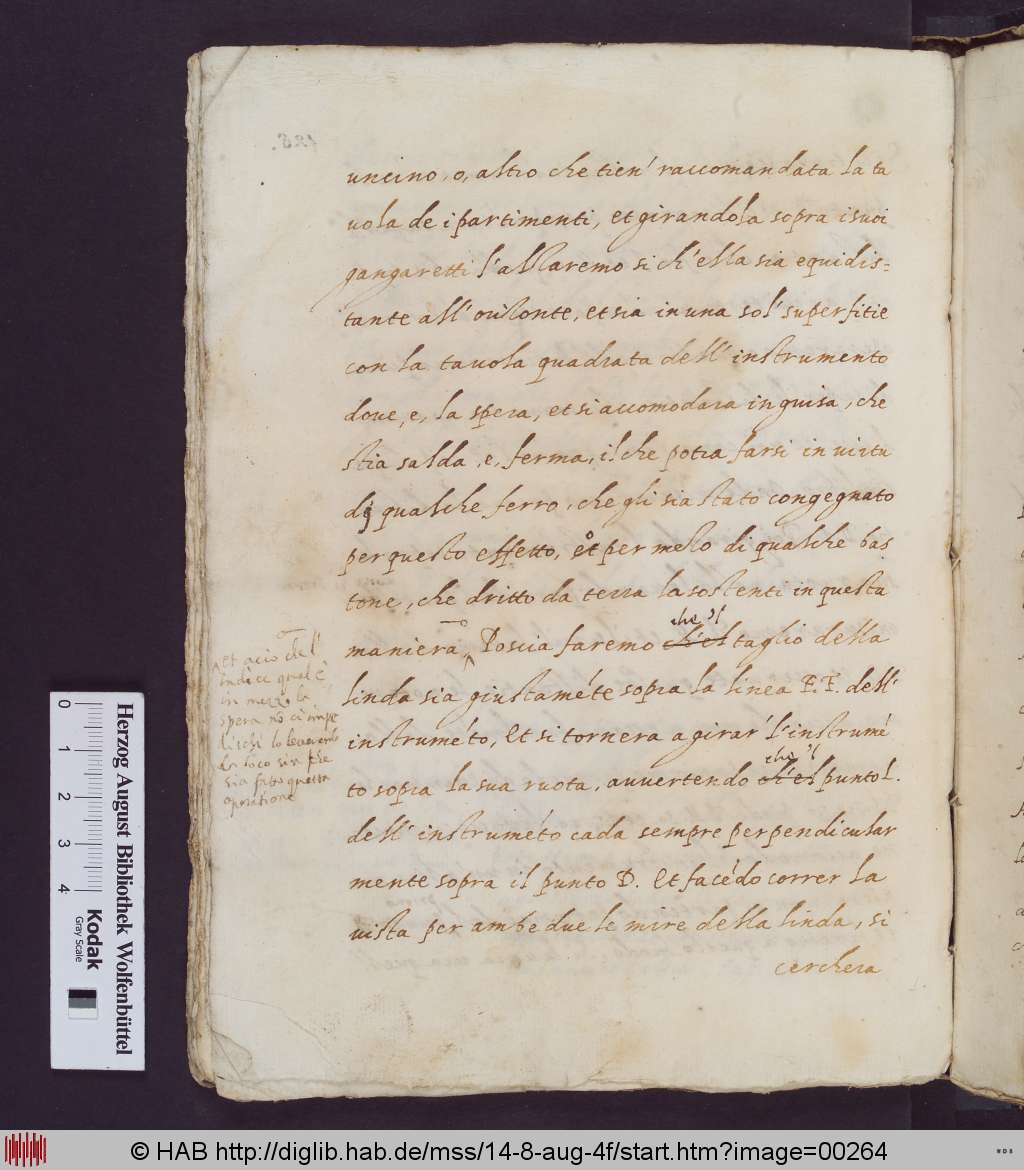 uncino, o, altro che tien' raccomandata la ta
uola de i partimenti, et girandola sopra i suoi
gangaretti l'alzaremo si ch'ella sia equidis=
tante all' orizonte, et sia in una sol' superfitie
con la tauola quadrata dell' instrumento
doue, e, la spera, et si accomodara in guisa, che
stia salda, e, ferma, il che potra farsi in uirtu
di qualche ferro, che gli sia stato congegnato
per questo effetto, et per mezo di qualche bas
tone, che dritto da terra la sostenti in questa
che 'l
maniera, Poscia faremo ch'el taglio della
linda sia giustaméte sopra la linea E.F. dell'
instruméto, Et si tornera a girar' l'instrumé
che 'l
to sopra la sua ruota, auuertendo ch'el punto I.
dell' instruméto cada sempre perpendicular
mente sopra il punto D. Et facédo correr la
uista per ambe due le mire della linda, si
cerchera
et acio che l'
indice qual è
in mezzo la
spera nō ci impe
dischi lo leuaremo
da loco sin che
sia fatto questa
operatione
Herzog August Bibliothek Wolfenbüttel
0 1 2 3 4
Kodak
Gray Scale
© HAB http://diglib.hab.de/mss/14-8-aug-4f/start.htm?image=00264